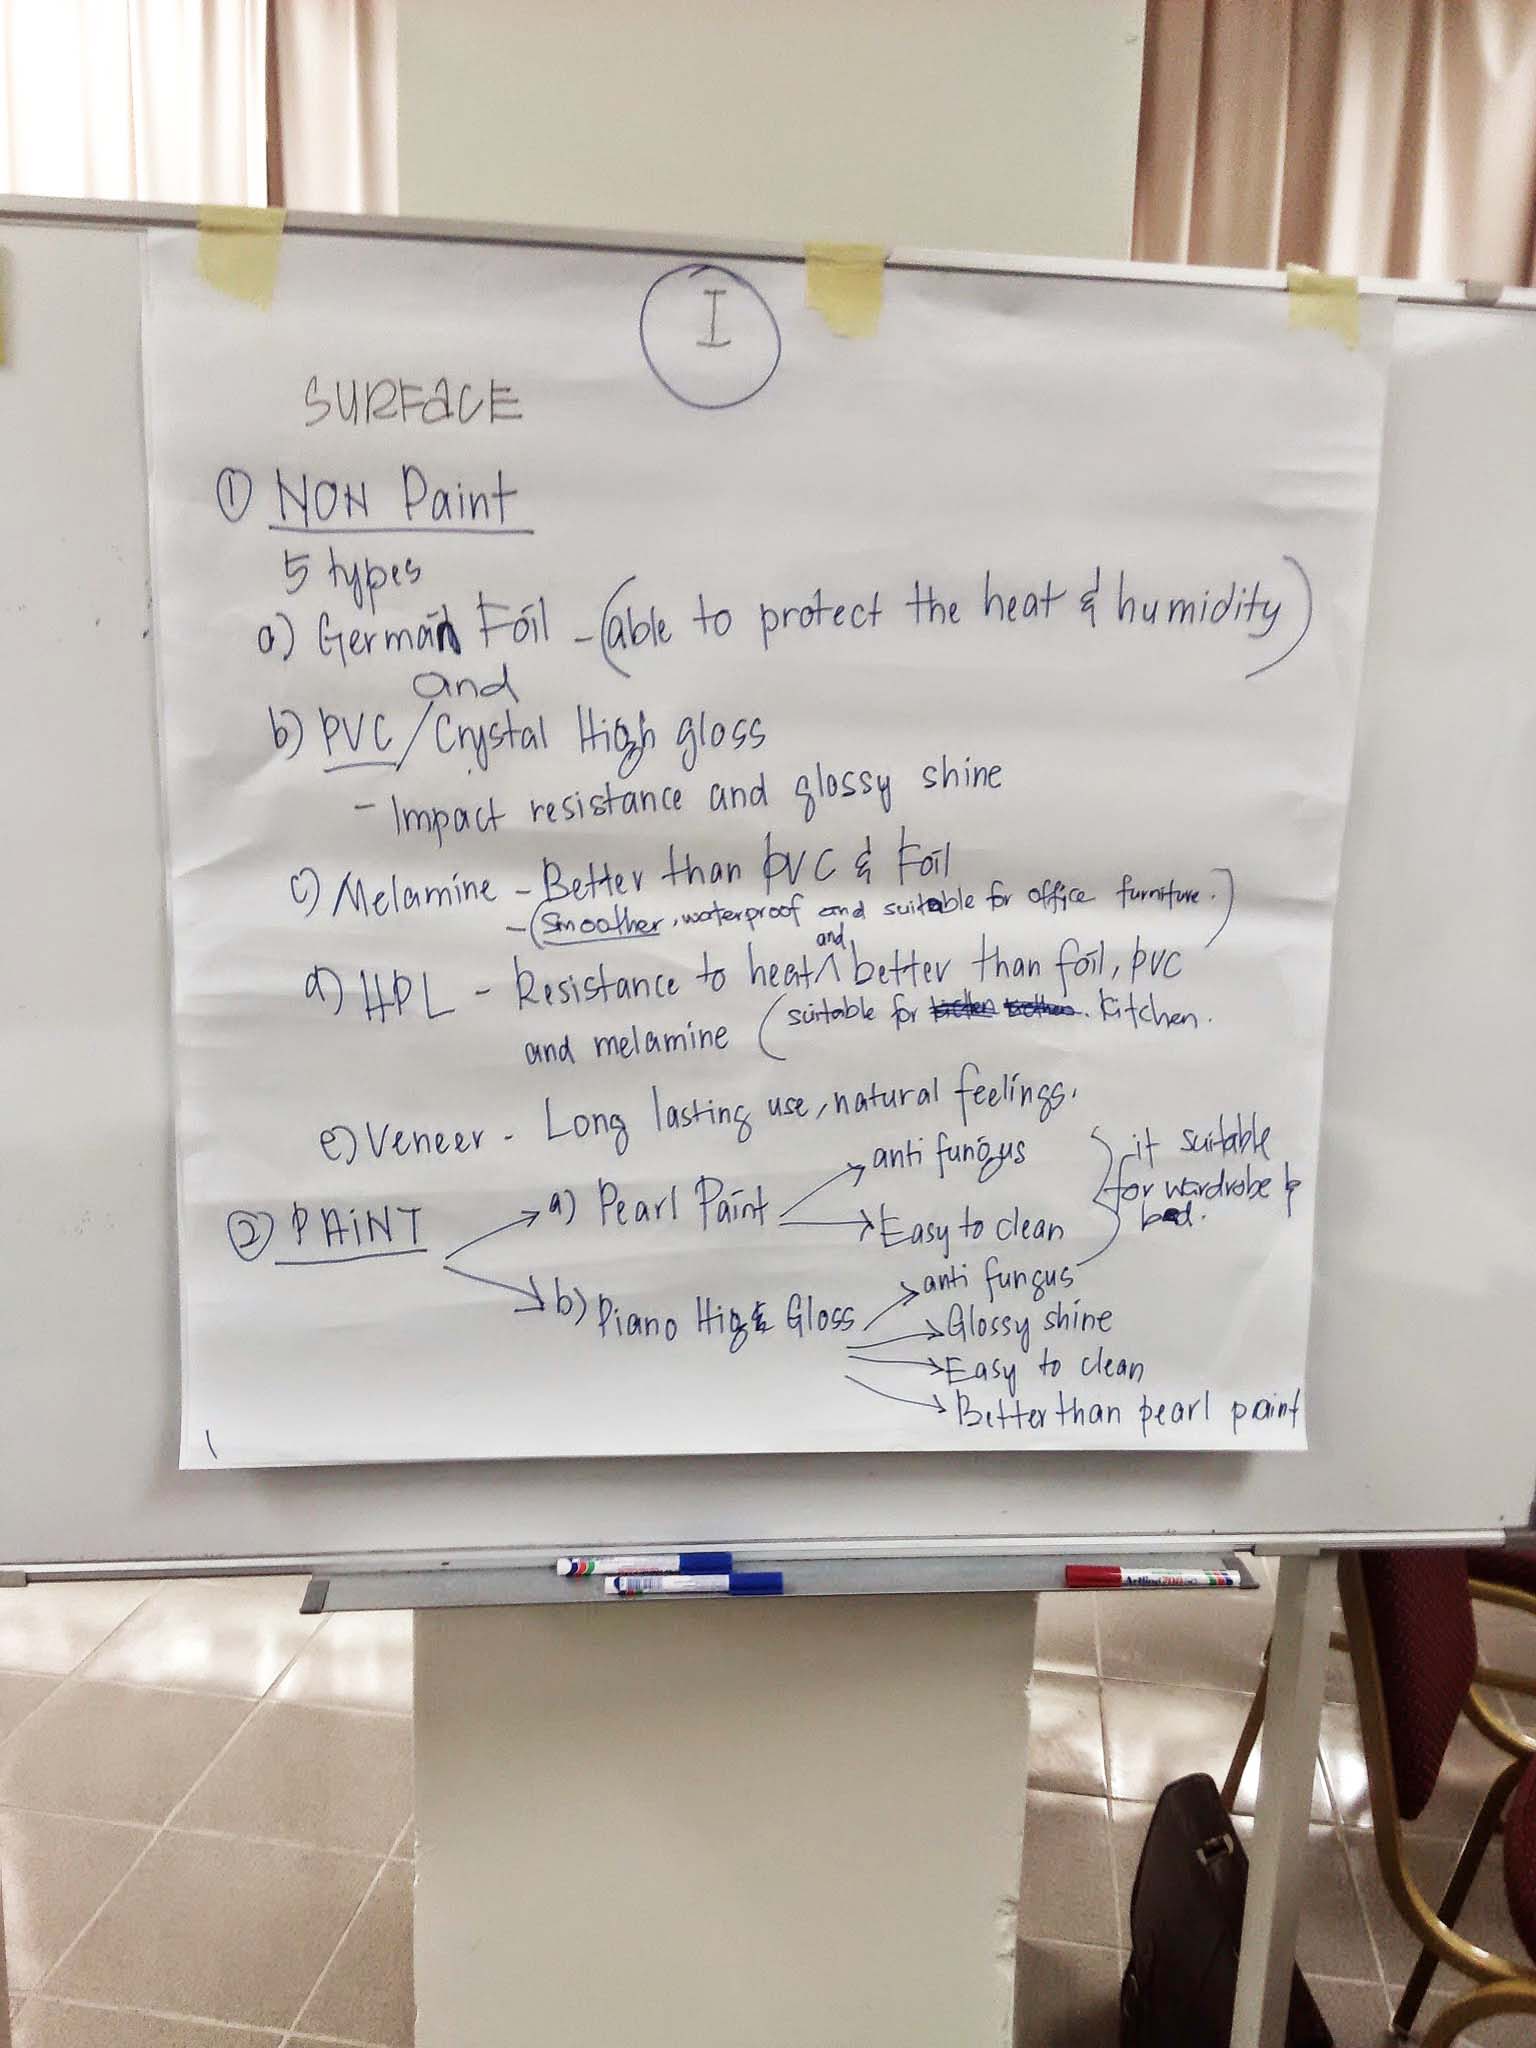 I
SURFACE
① NON Paint
5 types
a) German Foil - (able to protect the heat & humidity)
and
b) PVC / Crystal High gloss
- Impact resistance and glossy shine
c) Melamine - Better than PVC & Foil
- (smoother, waterproof and suitable for office furniture.)
and
d) HPL - Resistance to heat ^ better than foil, PVC
and melamine (suitable for kitchen.
e) Veneer - Long lasting use, natural feelings.
② PAINT
a) Pearl Paint
anti fungus
Easy to clean
it suitable
for wardrobe &
bed.
b) Piano High Gloss
anti fungus
Glossy shine
Easy to clean
Better than pearl paint
Artline 700